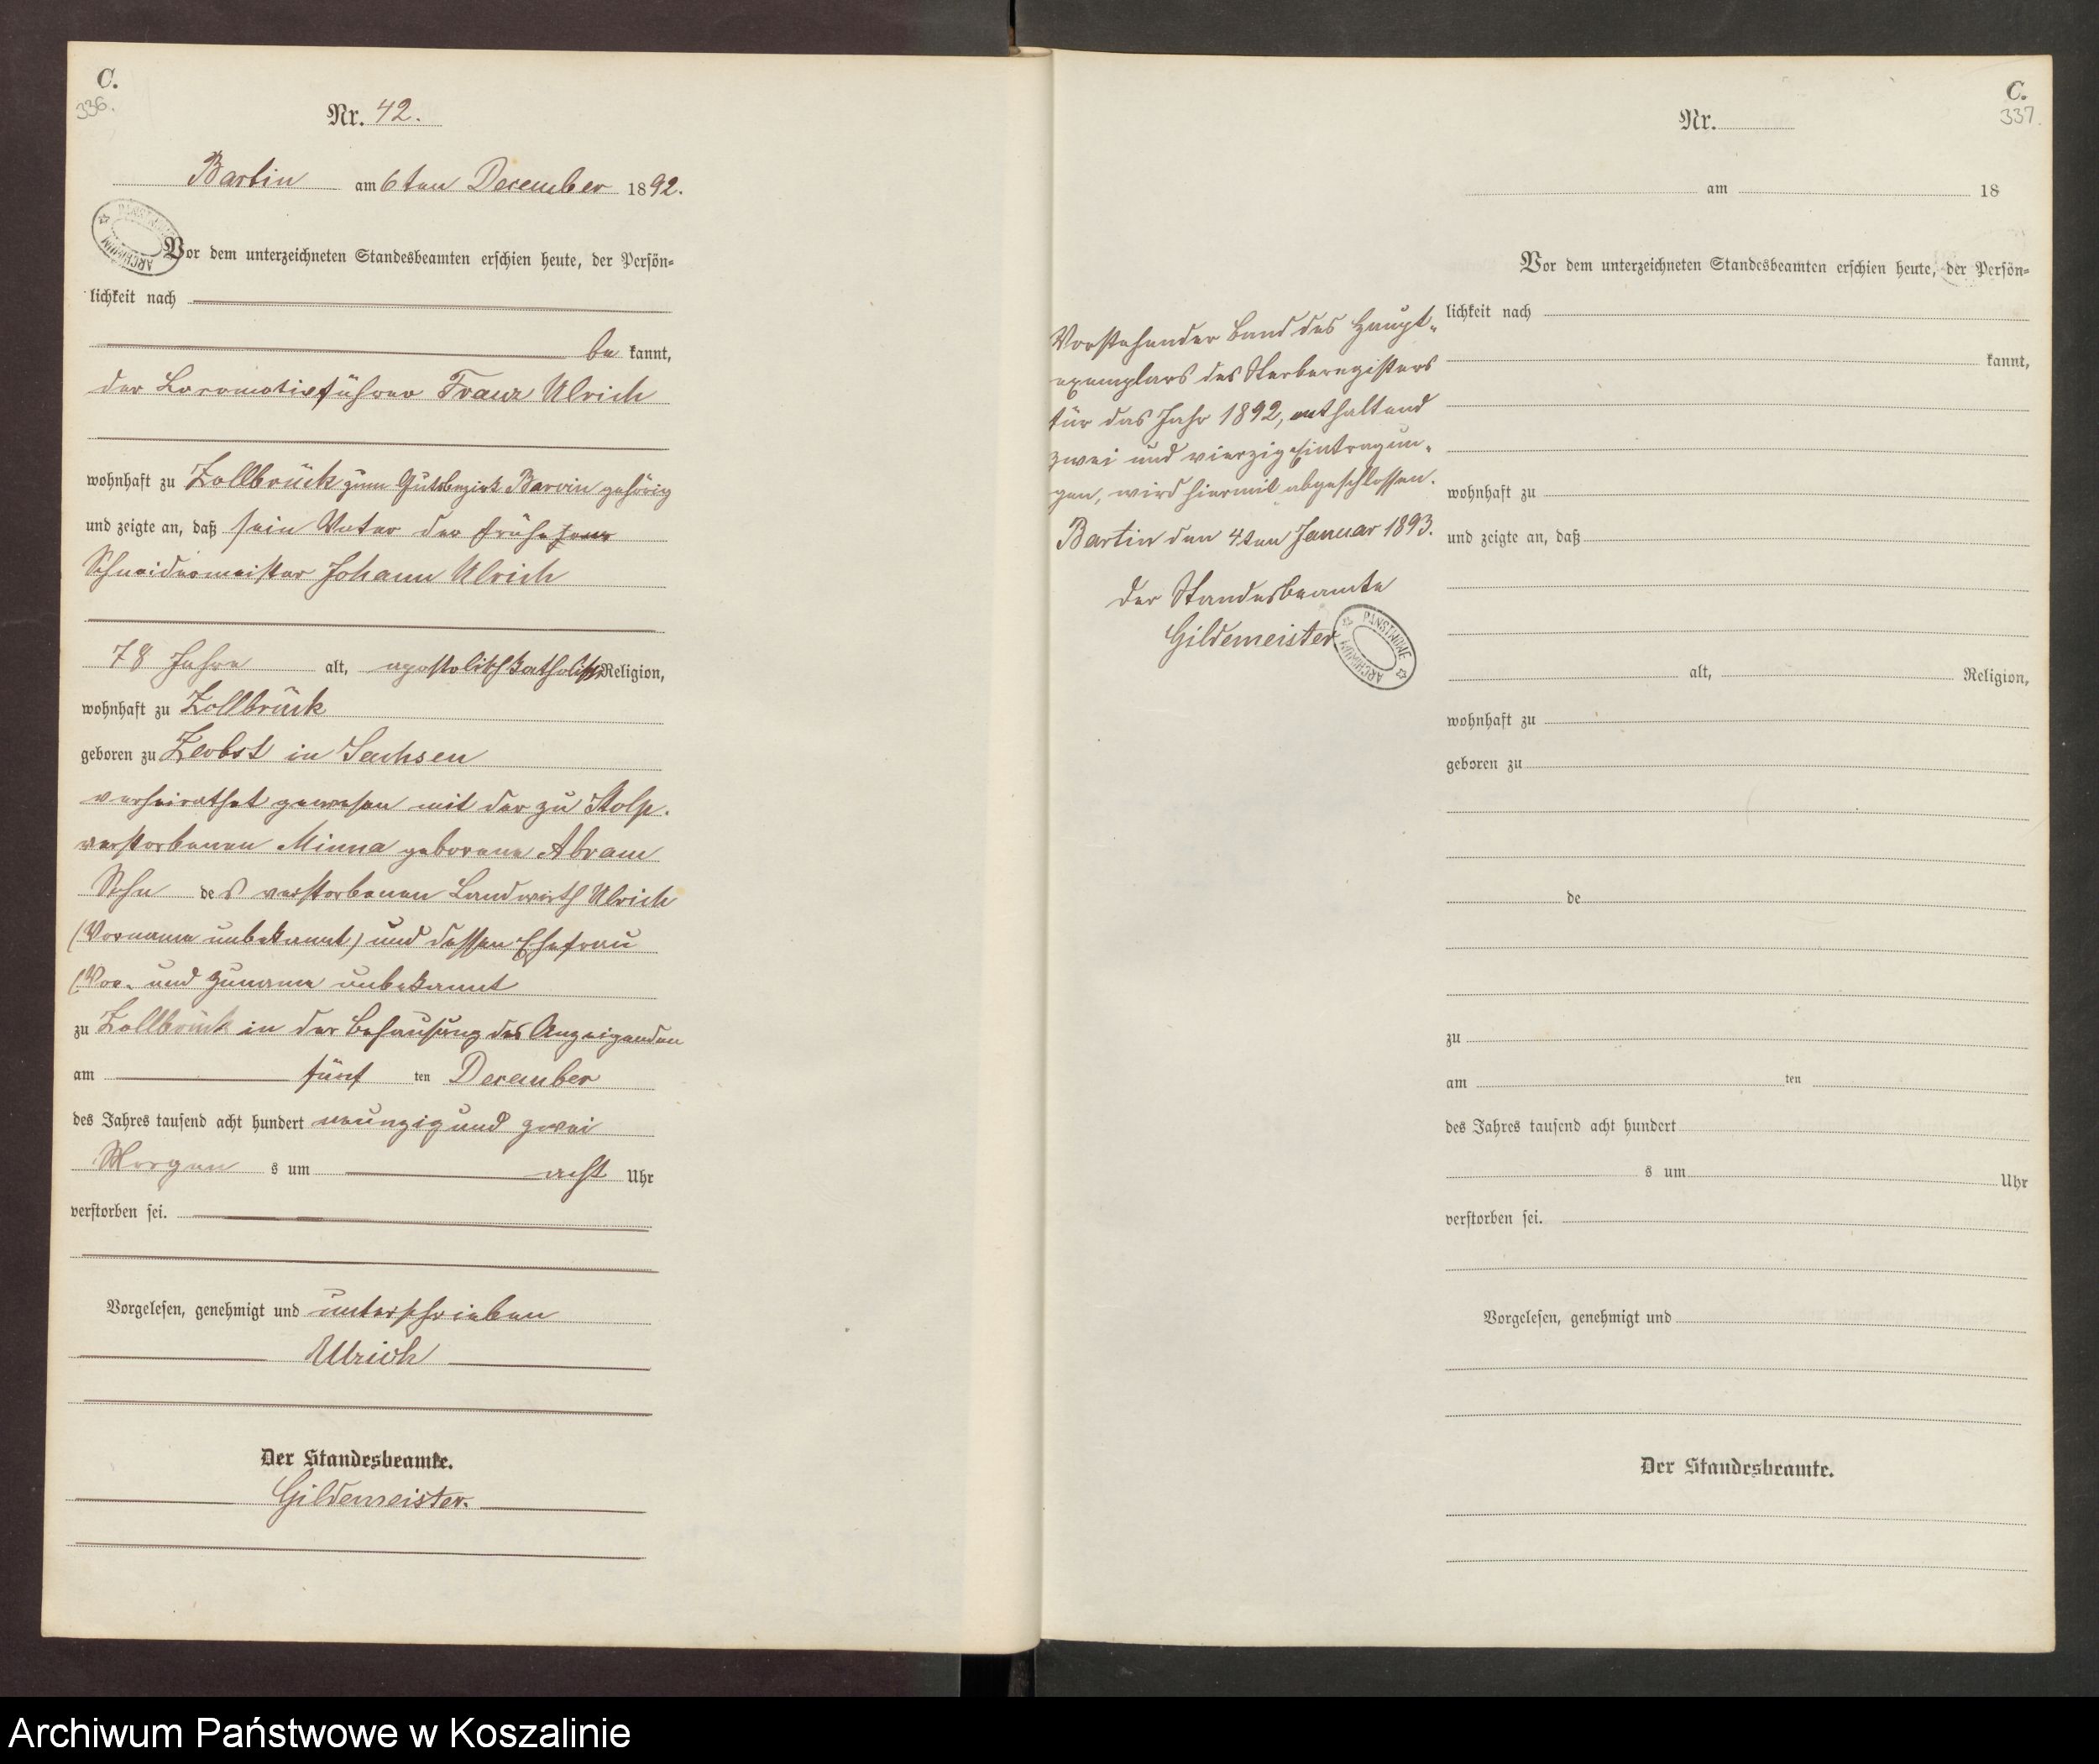 C.
336.
Nr. 42.
Bartin am 6ten December 1892.
Vor dem unterzeichneten Standesbeamten erschien heute, der Persön=
lichkeit nach
be kannt,
der Locomotivführer Franz Ulrich
wohnhaft zu Zollbrück zum Gutsbezirk Barvin gehörig
und zeigte an, daß sein Vater der frühere
Schneidermeister Johann Ulrich
78 Jahre alt, apostolisch katholisch Religion,
wohnhaft zu Zollbrück
geboren zu Zerbst in Sachsen
verheirathet gewesen mit der zu Stolp.
verstorbenen Minna geborene Abram
Sohn des verstorbenen Landwirth Ulrich
(Vorname unbekannt) und dessen Ehefrau
(Vor- und Zuname unbekannt
zu Zollbrück in der Behausung des Anzeigenden
am fünf ten December
des Jahres tausend acht hundert neunzig und zwei
Morgen s um acht Uhr
verstorben sei.
Vorgelesen, genehmigt und unterschrieben
Ulrich
Der Standesbeamte.
Gildemeister.
ARCHIWUM PAŃSTWOWE
C.
337.
Nr.
am 18
Vor dem unterzeichneten Standesbeamten erschien heute, der Persön=
lichkeit nach
kannt,
wohnhaft zu
und zeigte an, daß
alt, Religion,
wohnhaft zu
geboren zu
de
zu
am ten
des Jahres tausend acht hundert
s um Uhr
verstorben sei.
Vorgelesen, genehmigt und
Der Standesbeamte.
Vorstehender Band des Haupt-
exemplars des Sterberegisters
für das Jahr 1892, enthaltend
zwei und vierzig Eintragun-
gen, wird hiermit abgeschlossen.
Bartin den 4ten Januar 1893.
Der Standesbeamte
Gildemeister
ARCHIWUM PAŃSTWOWE
Archiwum Państwowe w Koszalinie